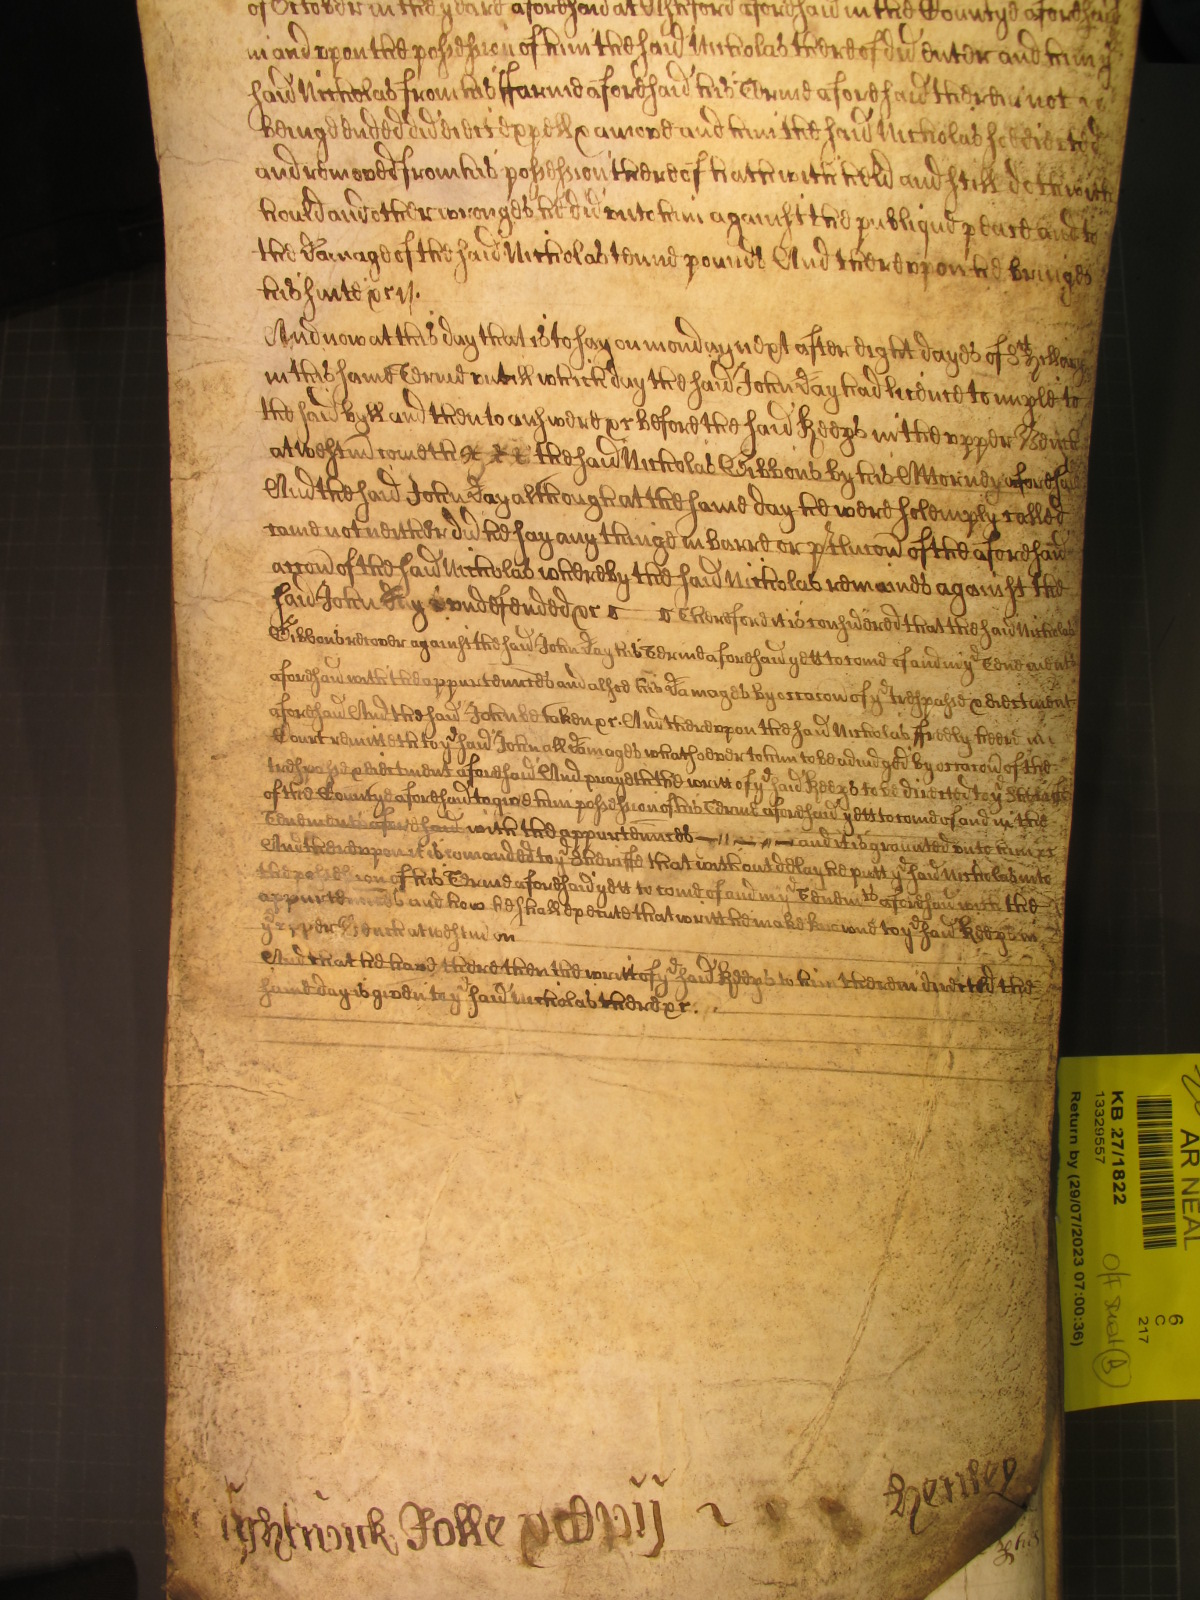 of October in the yeare aforesaid at Ashford aforesaid in the Countye aforesaid
in and vpon the possession of him the said Nicholas thereof did enter and him y
said Nicholas from his ffarme aforesaid his Terme aforesaid therein not
beinge ended did eiect expell & amove and him the said Nicholas soe eiected
and removed from his possession thereof hath withheld and still doth with
hould and other wronges he did vnto him against the publique peace and to
the damage of the said Nicholas tenne pounds And therevpon he bringes
his suite &c //.
And now at this day that is to say on monday next after eight dayes of St Hillary
in this same Terme vntill which day the said John Day had licence to imple to
the said byll and then to answere &c before the said Keeps in the vpper Bench
at westm cometh the said Nicholas Gibbons by his Attorney aforesaid
And the said John Day although at the same day he were solemply called
came not neither did he say any thinge in barre or p'clucon of the aforesaid
accon of the said Nicholas whereby the said Nicholas remaines against the
said John Day vndefended &c Therefore it is considered that the said Nicholas
Gibbons recover against the said John Day his Terme aforesaid yett to come of and in ye Tenements
aforesaid with the appurtennces and alsoe his damages by occacon of ye trespasse & eiectment
aforesaid And the said John be taken &c. And therevpon the said Nicholas ffreely heere in
Court remitteth to ye said John all damages whatsoever to him to be adiudged by occacon of the
trespasse & eiectment aforesaid And prayeth the writt of ye said Keeps to be directed to ye Sheriffe
of the Countye aforesaid to give him possession of his Terme aforesaid yett to come of and in the
Tenements aforesaid with the appurtennces — // — // — and it is graunted vnto him &c
And therevpon it is comanded to ye Sheriffe that without delay he putt ye said Nicholas into
the possession of his Terme aforesaid yett to come of and in ye Tenemts aforesaid with the
appurtennces and how he shall execute that writt he make knowne to ye said Keeps in
ye vpper Bench at westm on
And that he have there then the writt of ye said Keeps to him therein directed the
same day is given to ye said Nicholas there &c.
Rolle
Henley
AR NEAL
KB 27/1822
13329557
Return by (29/07/2023 07:00:36)
6
C
217